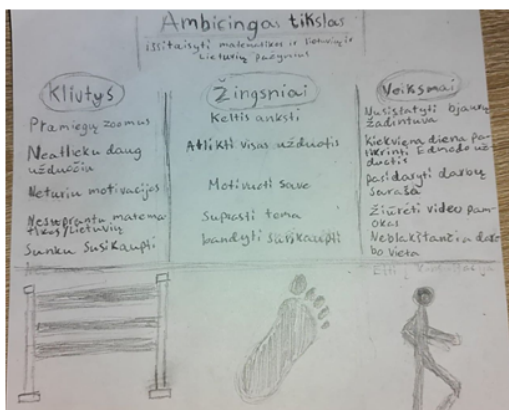 Ambicingas tikslas
išsitaisyti matematikos ir lietuvių ir
Lietuvių pažymius
Kliutys
Pramiegu zoomus
Neatlieku daug
užduočiu
Neturiu motivacijos
Nesuprantu matema-
tikos/lietuvių
Sunku susikaupti
Žingsniai
Keltis anksti
Atlikti visas užduotis
Motivuoti save
Suprasti tema
bandyti susikaupti
Veiksmai
Nusistatyti bjaurų
žadintuva
Kiekviena diena pa-
tikrinti Edmodo už-
duotis
Pasidaryti darbų
saraša
Žiūrėti video pam-
okas
Neblaškančia dar-
bo vieta